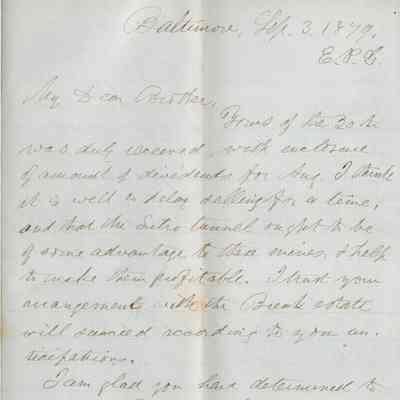 Baltimore, Sep. 3. 1879.
E.P.C.
My Dear Brother,
Yours of the 30th
was duly received, with enclosure
of amount of dividends for Aug. I think
it is well to delay selling for a time,
and that the Sutro tunnel ought to be
of some advantage to these mines, & help
to make them profitable. I trust your
arrangements with the estate
will succeed according to your an-
ticipations.
I am glad you have determined to